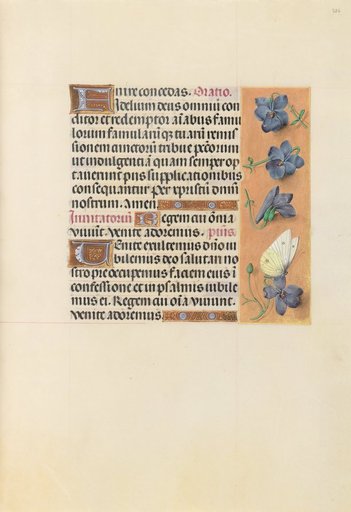 nire concedas. Oratio.
Fidelium deus omniū con
ditor et redemptor aīabus famu
lorum famularūq̄ tuarū remis
sionem cunctorū tribue pctōrum
ut indulgentiā quam semper op
tauerunt piis supplicationibus
consequantur per xpistum dnm̄
nostrum. Amen
Inuitatoriū Regem cui oīa
uiuūt. Venite adoremus. p̄us.
Venite exultemus dn̄o iu
bilemus deo salutari no
stro preocupemus faciem eius ī
confessione et in psalmis iubile
mus ei. Regem cui oīa uiuunt.
Venite adoremus